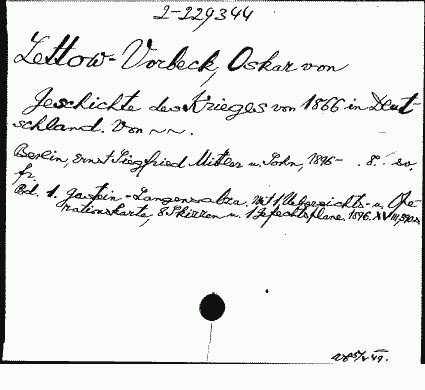 2-229344
Lettow-Vorbeck, Oskar von
Geschichte des Krieges von 1866 in Deut-
schland. Von ~~.
Berlin, Ernst Siegfried Mittler u. Sohn, 1896- . 8. so.
fr.
Bd. 1. Gastein-Langensalza. Mit 1 Uebersichts- u. Ope-
rationskarte, 8 Skizzen u. 1 Gefechtsplane. 1896. XVIII,